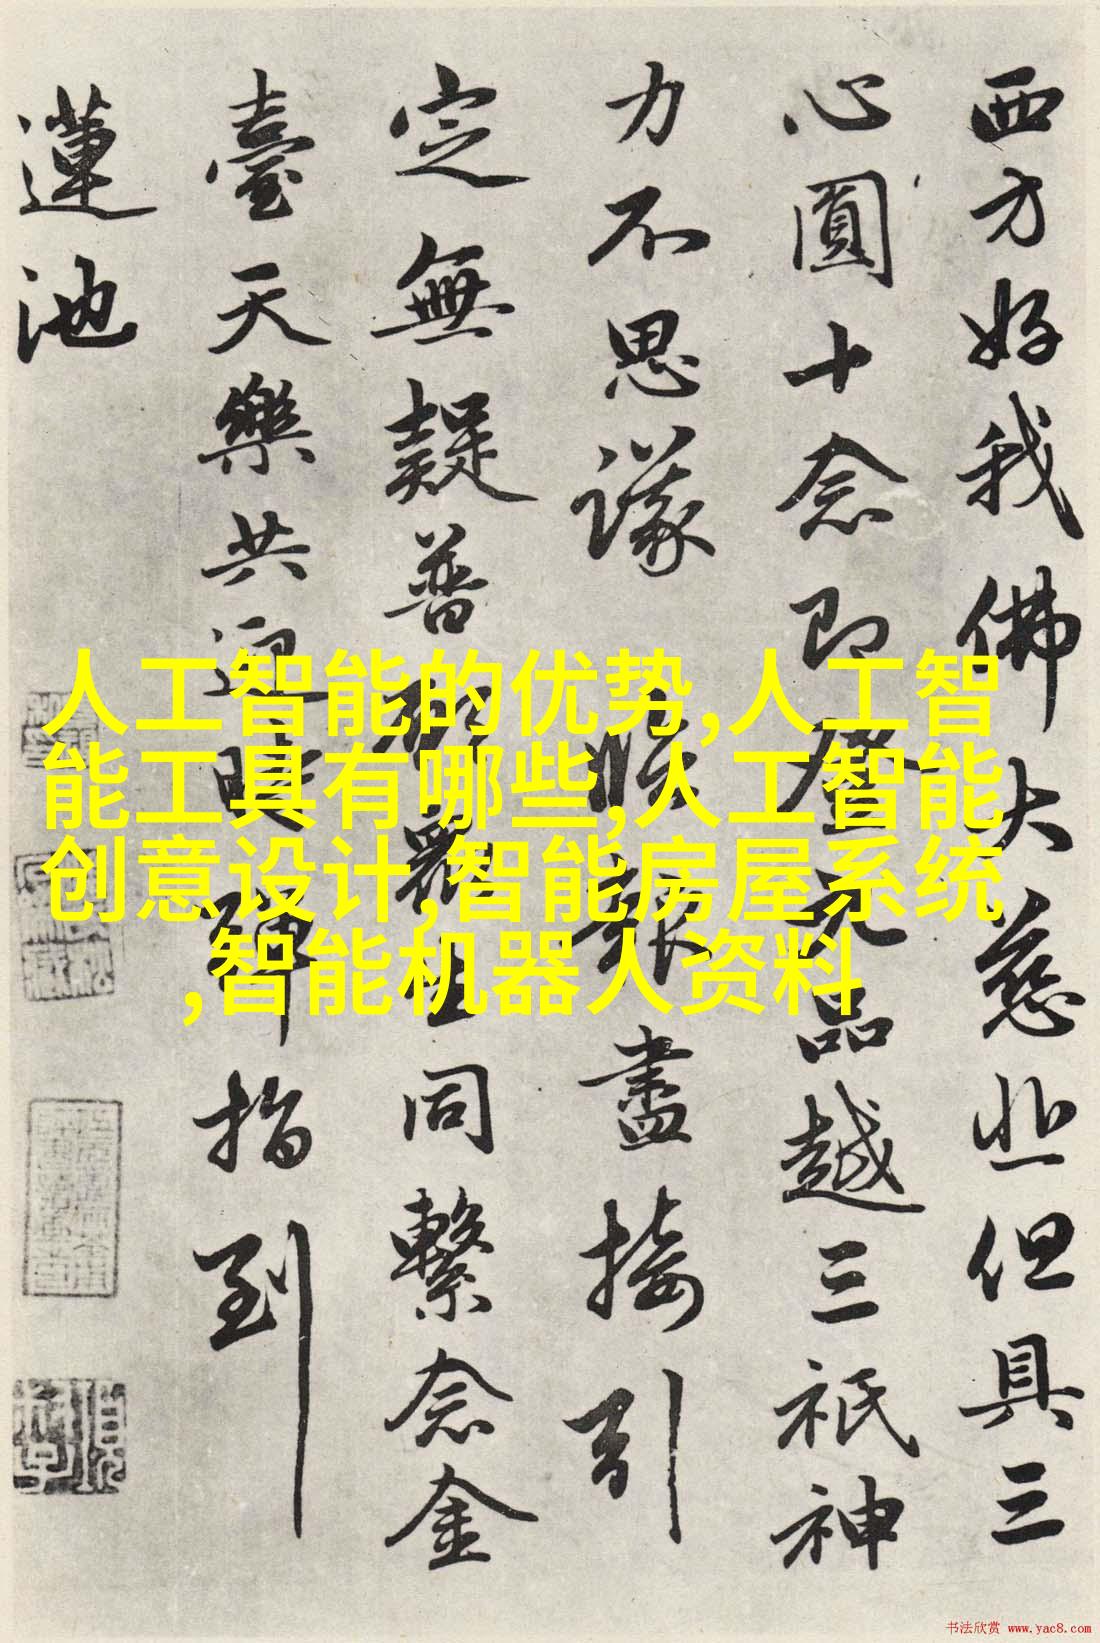 西方好我佛大慈悲但具三
心圓十念即登品越三祇神
力不思議臨報盡接引
定無疑普願眾生同繫念金
臺天樂共迎時彈指到
蓮池
人工智能的优势,人工智
能工具有哪些,人工智能
创意设计,智能房屋系统
,智能机器人资料
书法欣赏 www.yac8.com